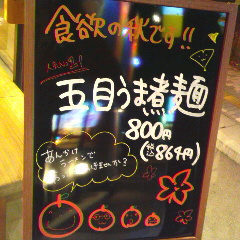 食欲の秋です!!
人気No.1!
五目うま煮麺
800円
(税込864円)
あんかけ
ラーメンで